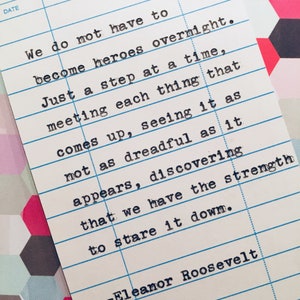 DATE
We do not have to
become heroes overnight.
Just a step at a time,
meeting each thing that
comes up, seeing it as
not as dreadful as it
appears, discovering
that we have the strength
to stare it down.
-Eleanor Roosevelt